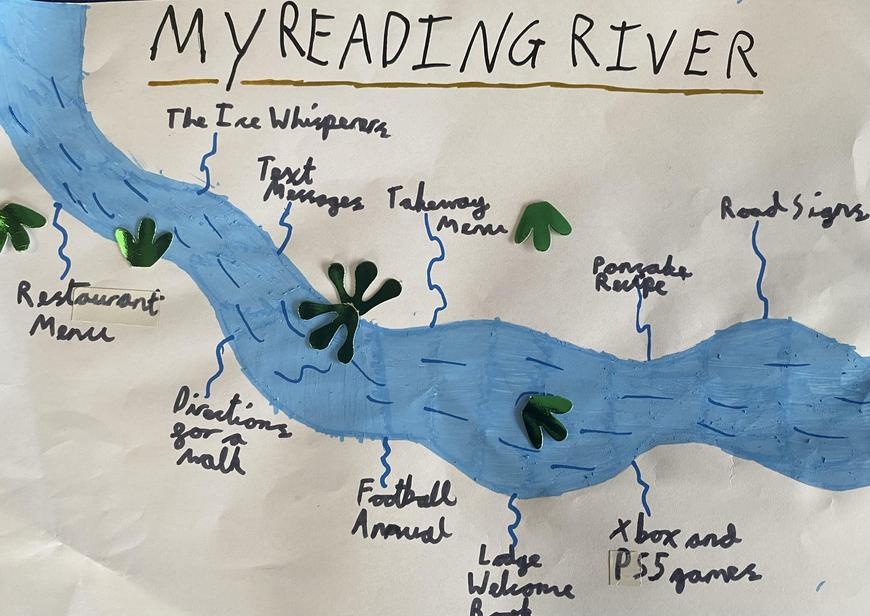 MY READING RIVER
The Ice Whisperers
Text
Messages
Takeway
Menu
Road Signs
Pancake
Recipe
Restaurant
Menu
Directions
for a
walk
Football
Annual
Lodge
Welcome
Book
Xbox and
PS5 games